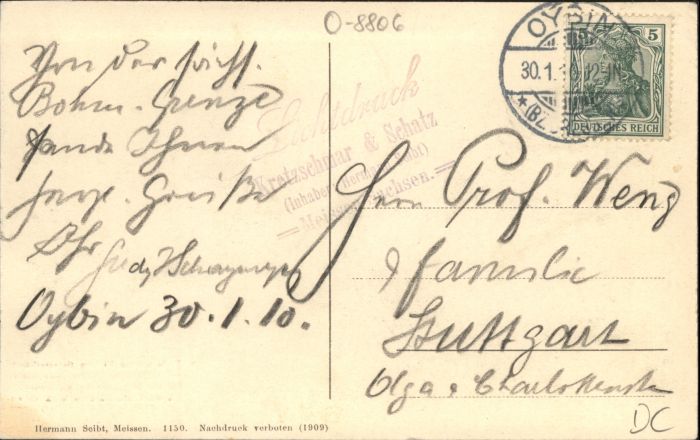 O-8806
Von der sächs.
Böhm. Grenze
sende Ihnen
herzl. Grüße
Ihr
Oybin 30.1.10.
Hermann Seibt, Meissen. 1150. Nachdruck verboten (1909)
Lichtdruck
Kretzschmar & Schatz
(Inhaber: Hermann Seibt)
Meissen-Sachsen.
OYBIN
30.1.10 12-1N
DEUTSCHES REICH
5
Herrn Prof. Weng
& Familie
Stuttgart
Olga & Charlottenstr.
DC